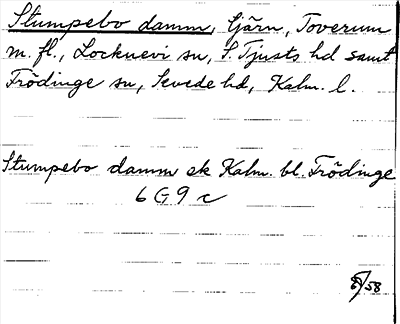 Stumpebo damm, Gjärn, Toverum
m. fl., Locknevi sn, S. Tjusts hd samt
Frödinge sn, Sevede hd, Kalm. l.
Stumpebo damm ek Kalm. bl. Frödinge
6 G 9 c
/58